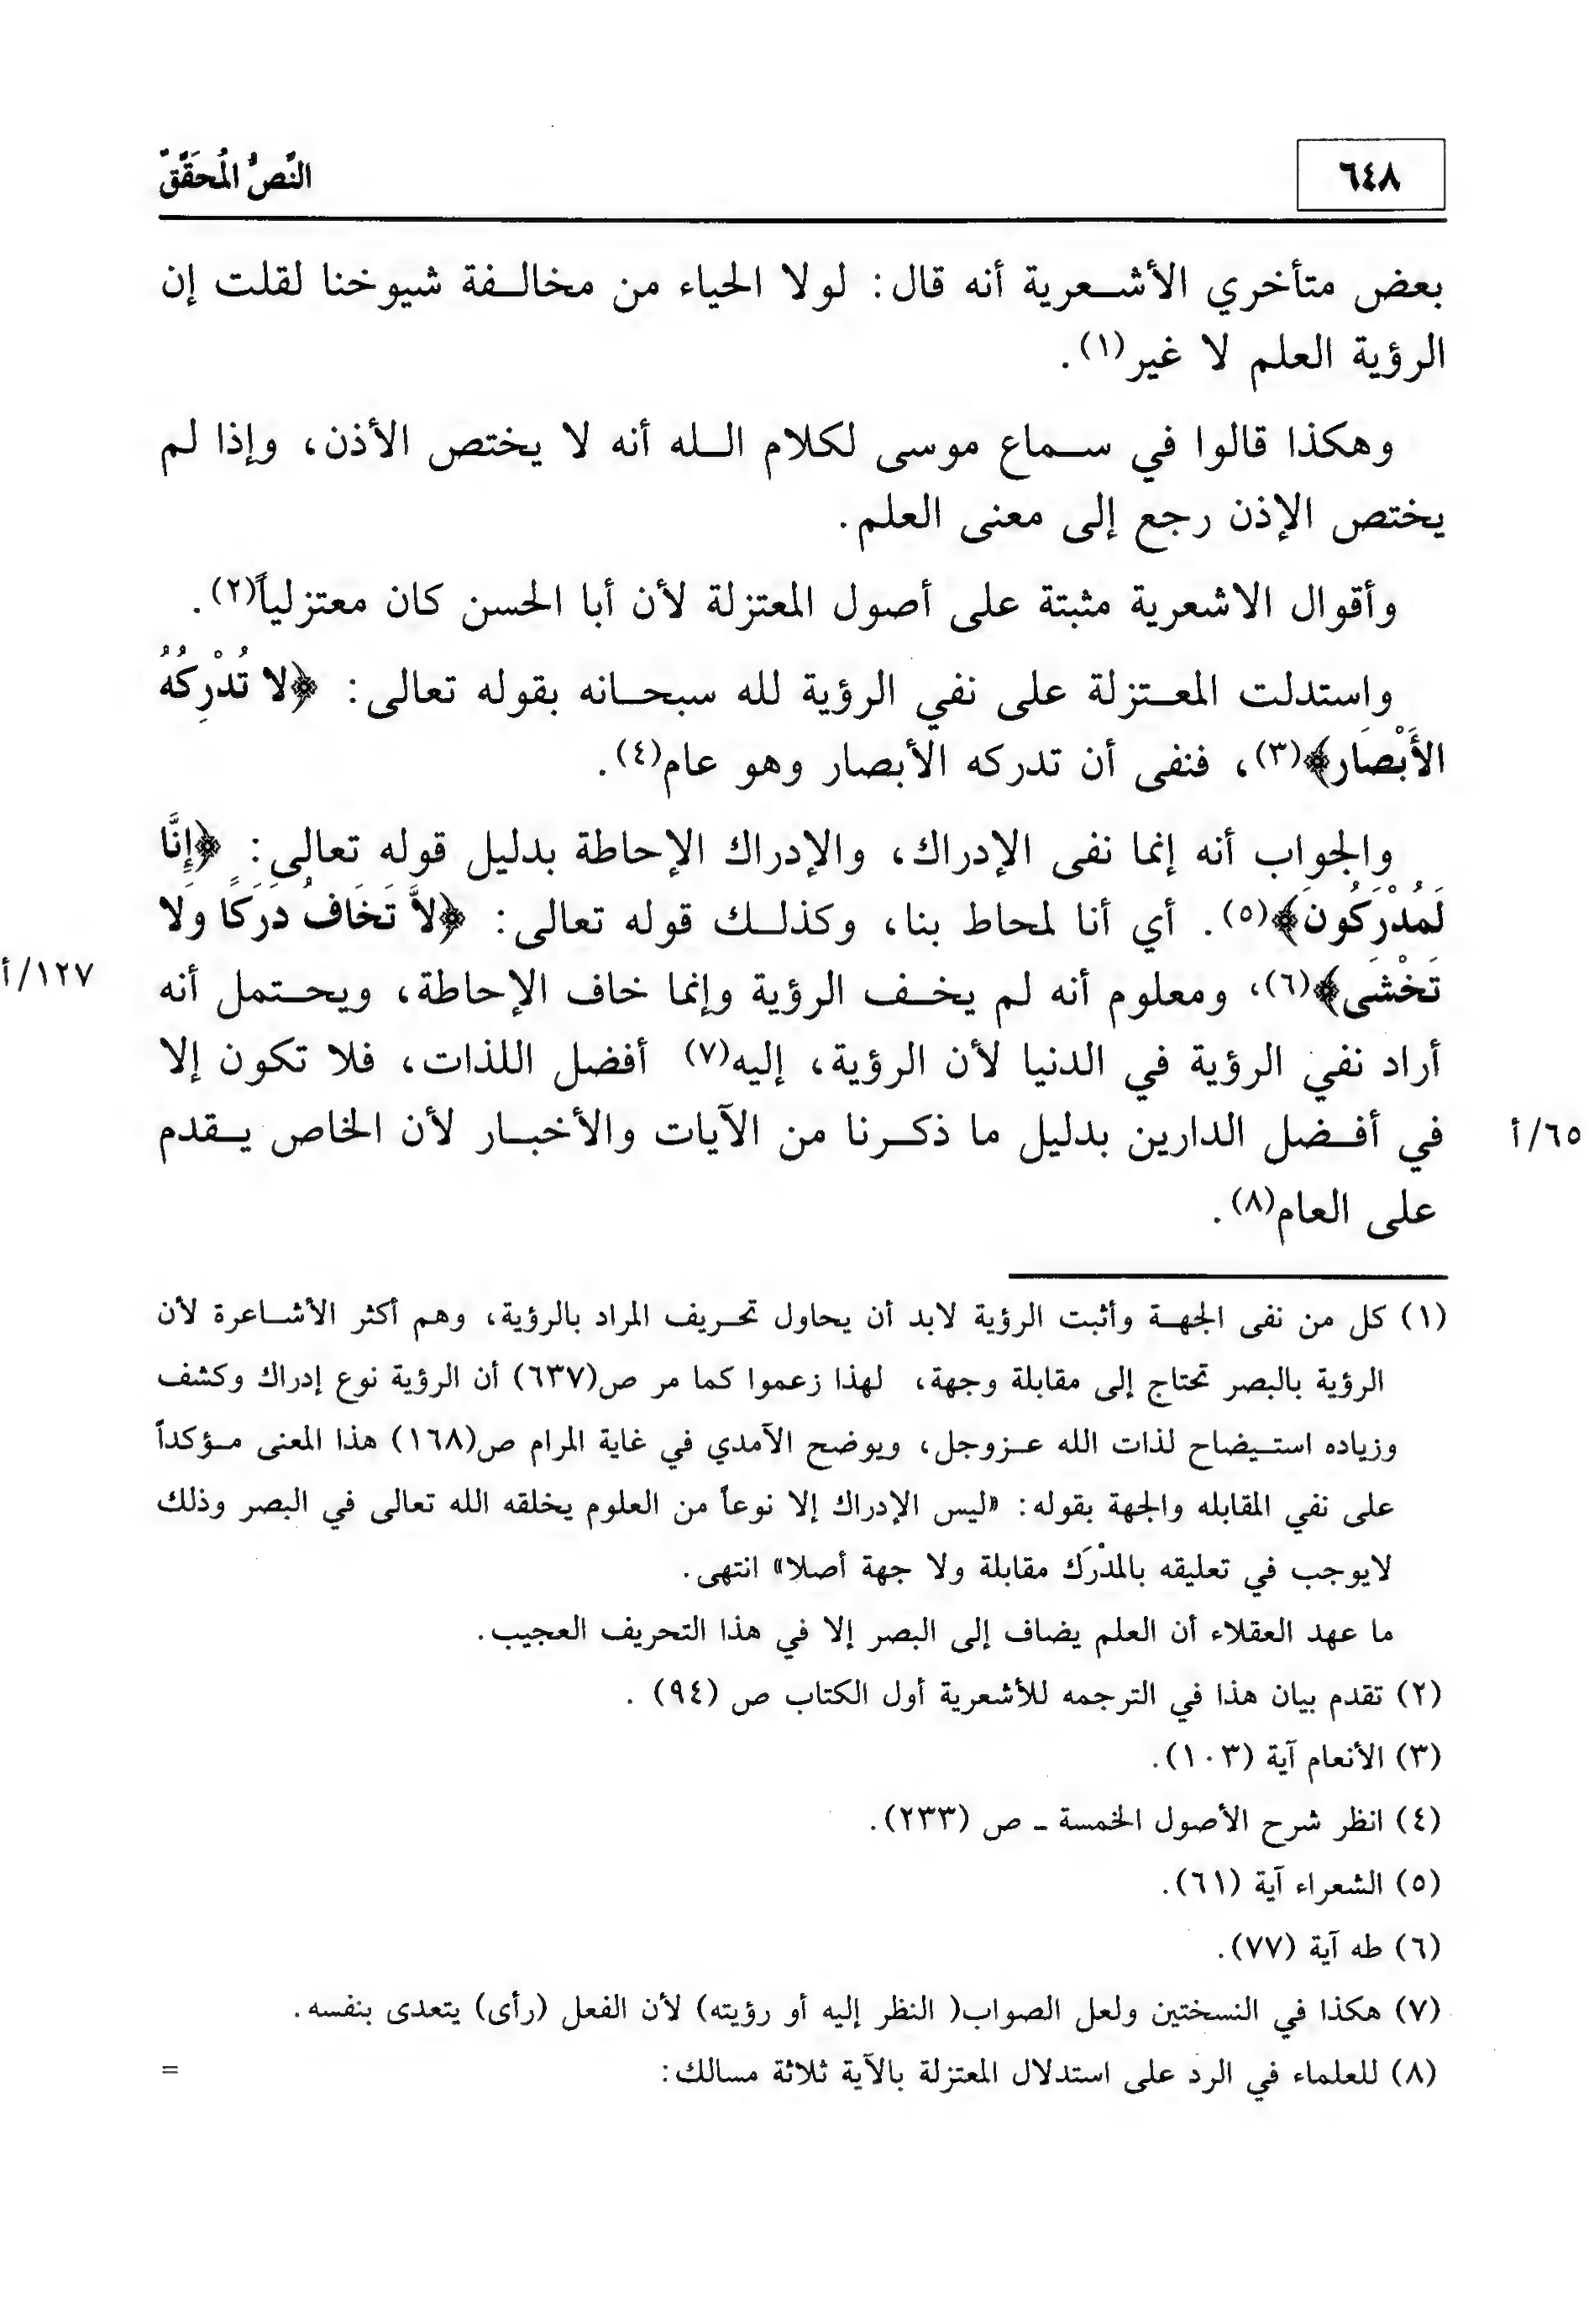 ٦٤٨
النَّصُّ المُحَقَّقْ
بعض متأخري الأشعرية أنه قال: لولا الحياء من مخالفة شيوخنا لقلت إن
الرؤية العلم لا غير(١).
وهكذا قالوا في سماع موسى لكلام الله أنه لا يختص الأذن، وإذا لم
يختص الإذن رجع إلى معنى العلم.
وأقوال الاشعرية مثبتة على أصول المعتزلة لأن أبا الحسن كان معتزلياً(٢).
واستدلت المعتزلة على نفي الرؤية لله سبحانه بقوله تعالى: ﴿لا تُدْرِكُهُ
الأَبْصَار﴾(٣)، فنفى أن تدركه الأبصار وهو عام(٤).
والجواب أنه إنما نفى الإدراك، والإدراك الإحاطة بدليل قوله تعالى: ﴿إِنَّا
لَمُدْرَكُونَ﴾(٥). أي أنا لمحاط بنا، وكذلك قوله تعالى: ﴿لاَّ تَخَافُ دَرَكًا وَلا
تَخْشَى﴾(٦)، ومعلوم أنه لم يخف الرؤية وإنما خاف الإحاطة، ويحتمل أنه
١٢٧/أ
أراد نفي الرؤية في الدنيا لأن الرؤية، إليه(٧) أفضل اللذات، فلا تكون إلا
في أفضل الدارين بدليل ما ذكرنا من الآيات والأخبار لأن الخاص يقدم
٦٥/أ
على العام(٨).
(١) كل من نفى الجهة وأثبت الرؤية لابد أن يحاول تحريف المراد بالرؤية، وهم أكثر الأشاعرة لأن
الرؤية بالبصر تحتاج إلى مقابلة وجهة، لهذا زعموا كما مر ص(٦٣٧) أن الرؤية نوع إدراك وكشف
وزياده استيضاح لذات الله عزوجل، ويوضح الآمدي في غاية المرام ص(١٦٨) هذا المعنى مؤكداً
على نفي المقابله والجهة بقوله: «ليس الإدراك إلا نوعاً من العلوم يخلقه الله تعالى في البصر وذلك
لايوجب في تعليقه بالمدْرَك مقابلة ولا جهة أصلا» انتهى.
ما عهد العقلاء أن العلم يضاف إلى البصر إلا في هذا التحريف العجيب.
(٢) تقدم بيان هذا في الترجمه للأشعرية أول الكتاب ص (٩٤) .
(٣) الأنعام آية (١٠٣).
(٤) انظر شرح الأصول الخمسة ـ ص (٢٣٣).
(٥) الشعراء آية (٦١).
(٦) طه آية (٧٧).
(٧) هكذا في النسختين ولعل الصواب( النظر إليه أو رؤيته) لأن الفعل (رأى) يتعدى بنفسه.
(٨) للعلماء في الرد على استدلال المعتزلة بالآية ثلاثة مسالك: =